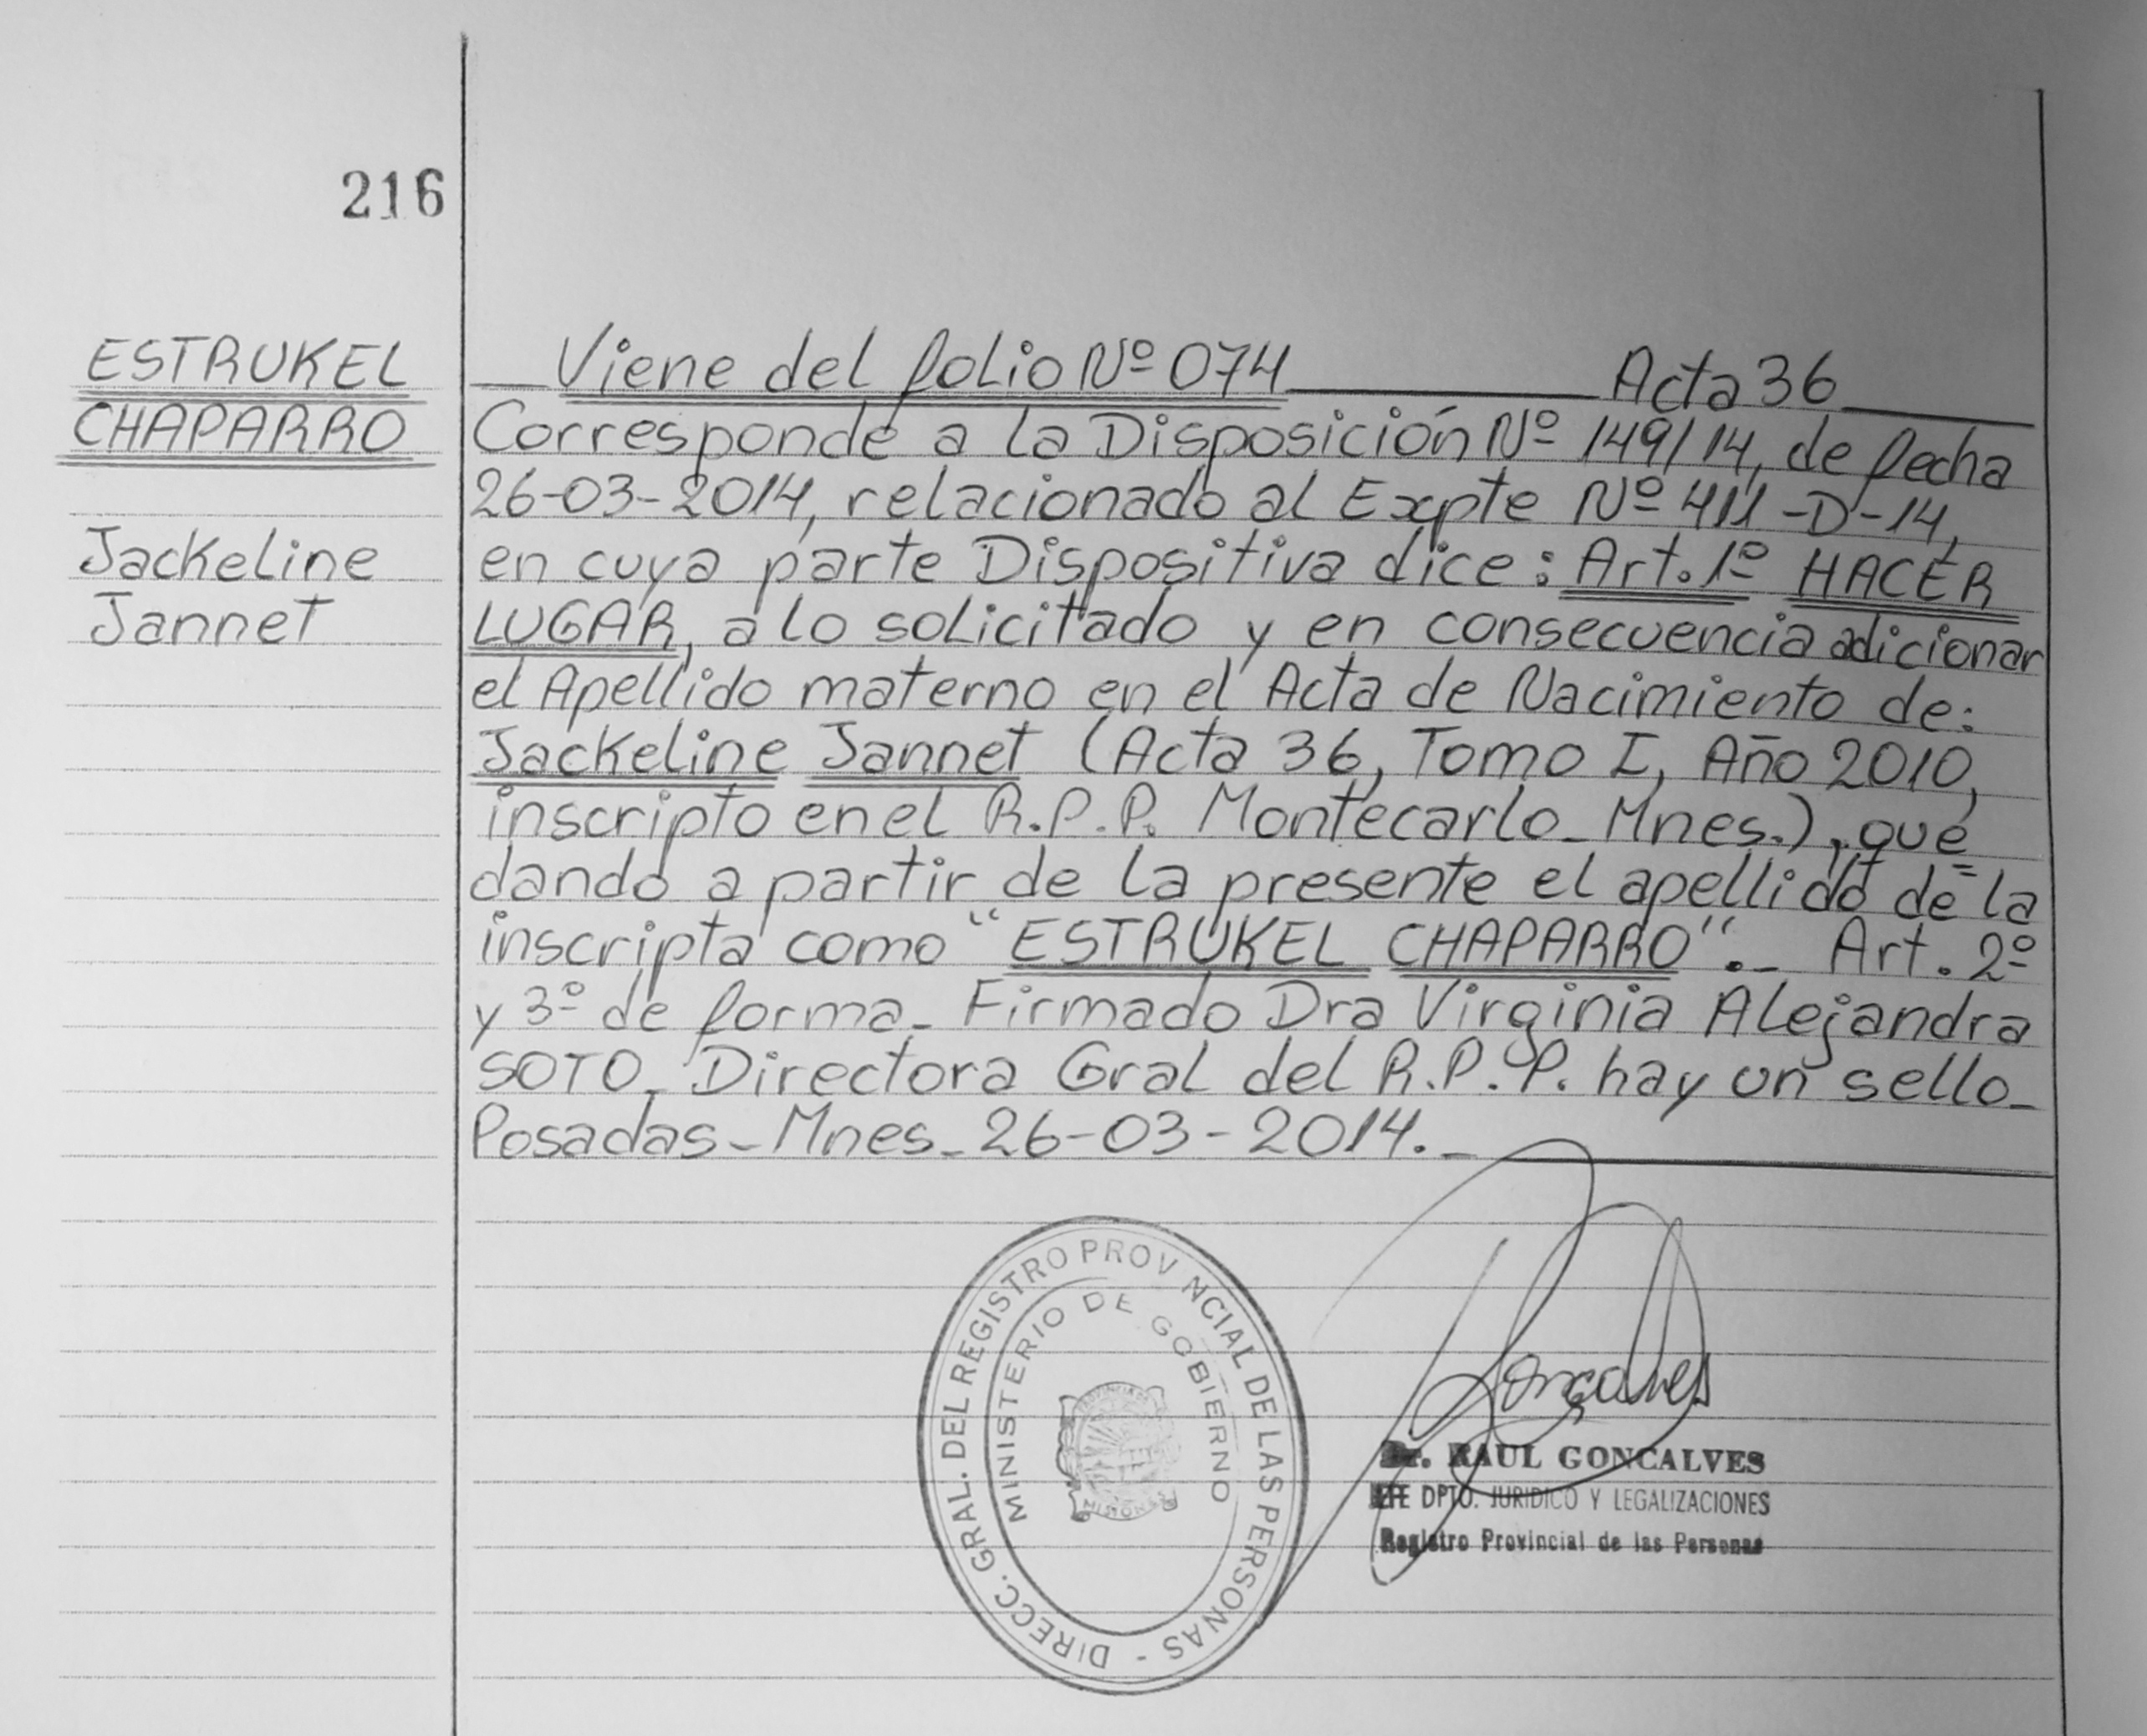 216
ESTRUKEL
CHAPARRO
Jackeline
Jannet
Viene del folio Nº 074 Acta 36
Corresponde a la Disposición Nº 149/14, de fecha
26-03-2014, relacionado al Expte Nº 411-D-14,
en cuya parte Dispositiva dice: Art. 1º HACER
LUGAR, a lo solicitado y en consecuencia adicionar
el Apellido materno en el Acta de Nacimiento de:
Jackeline Jannet (Acta 36, Tomo I, Año 2010,
inscripto en el R.P.P. Montecarlo_Mnes.), que=
dando a partir de la presente el apellido de la
inscripta como "ESTRUKEL CHAPARRO"._ Art. 2º
y 3º de forma_ Firmado Dra Virginia Alejandra
SOTO_ Directora Gral del R.P.P. hay un sello_
Posadas_Mnes_26-03-2014._
DIRECC. GRAL. DEL REGISTRO PROVINCIAL DE LAS PERSONAS -
MINISTERIO DE GOBIERNO
MISIONES
Goncalves
Dr. RAUL GONCALVES
JEFE DPTO. JURIDICO Y LEGALIZACIONES
Registro Provincial de las Personas